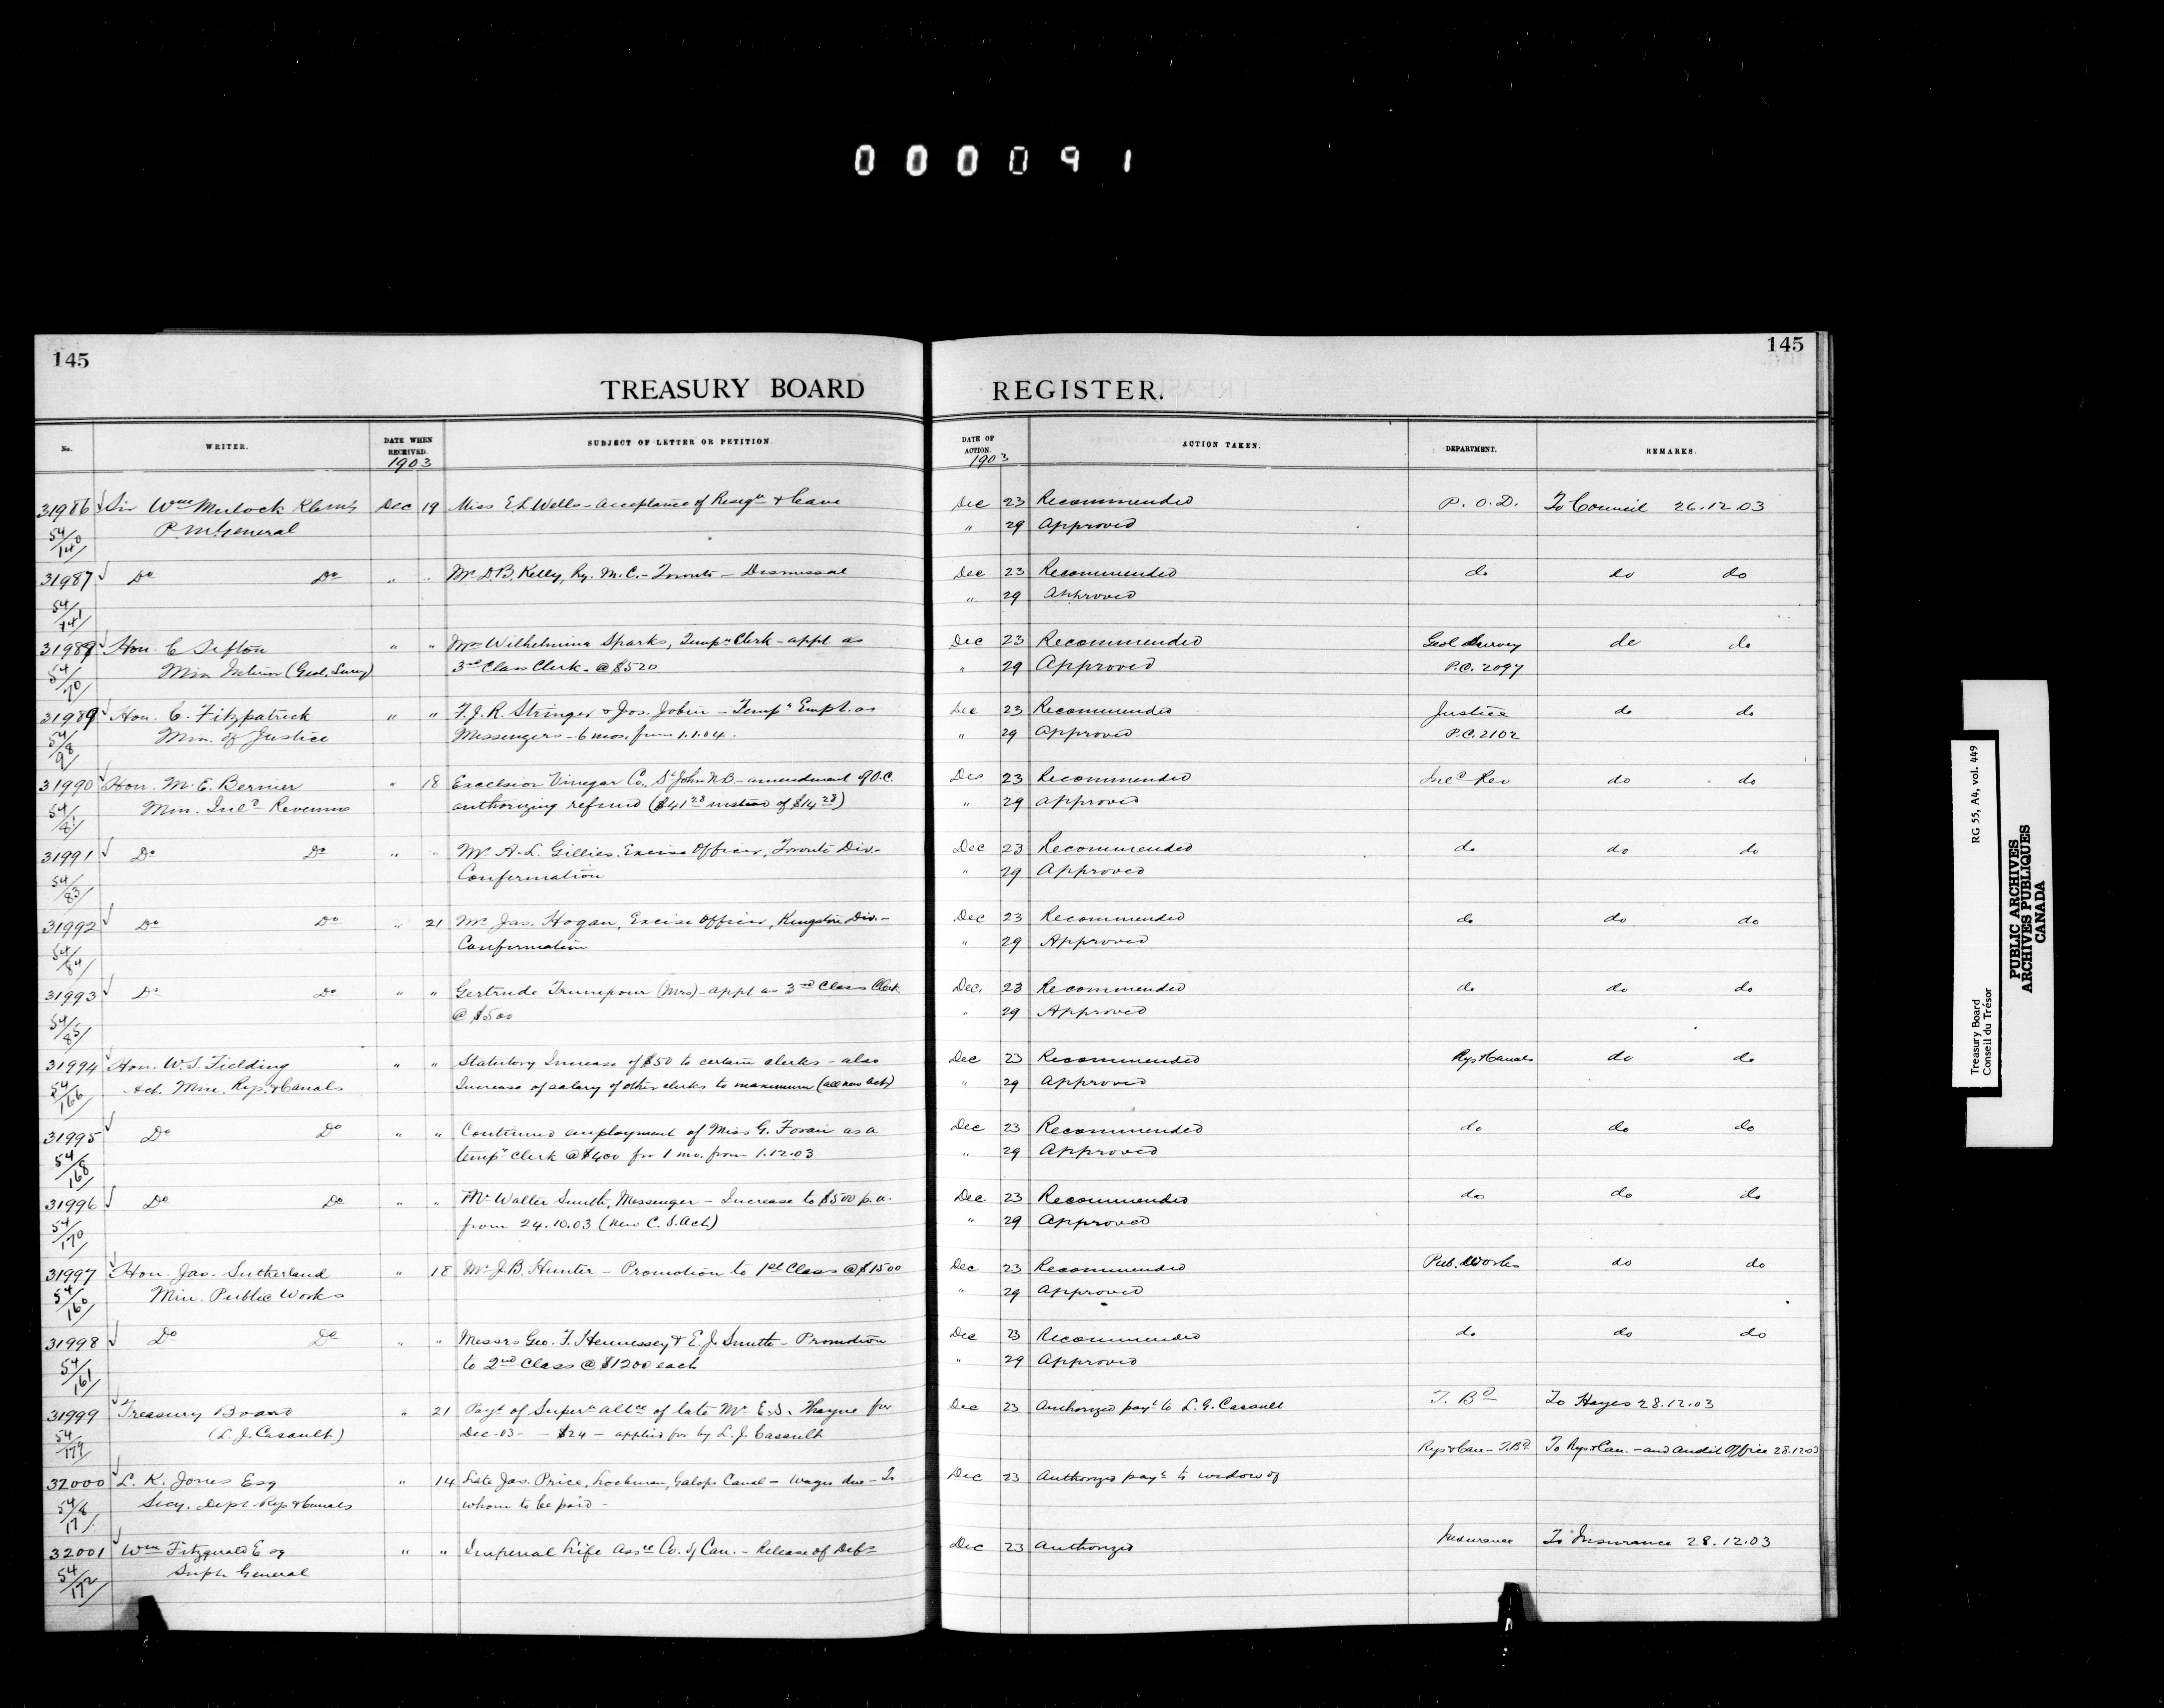 000091
145
145
TREASURY BOARD REGISTER.
No. WRITER. DATE WHEN RECEIVED. SUBJECT OF LETTER OR PETITION. DATE OF ACTION. ACTION TAKEN. DEPARTMENT. REMARKS.
1903 1903
31986 Sir Wm Mulock Dec 19 Miss E.L. Wells - acceptance of Resign & leave Dec 23 Recommended P.O.D. To Council 26.12.03
54/140 P.M. General " 29 Approved
31987 Do Do " " Mr D.B. Kelly, Ry. M.C. - Toronto - Dismissal Dec 23 Recommended do do do
54/141 " 29 Approved
31988 Hon. C Sifton " " Wilhelmina Sparks, Tempy Clerk - appt as Dec 23 Recommended Geol Survey do do
54/70 Min Interior (Geol. Survy) 3rd Class Clerk - @ $520 " 29 Approved P.C. 2097
31989 Hon. C. Fitzpatrick " " F.J.R. Stringer & Jos. Jobin - Tempy Empt. as Dec 23 Recommended Justice do do
Min. of Justice Messengers - 6 mos. from 1.1.04. " 29 Approved P.C. 2102
31990 Hon. M.E. Bernier " 18 Excelsior Vinegar Co, St John N.B. - amendment of O.C. Dec 23 Recommended Inld Rev do do
54/81 Min. Inld Revenue authorizing refund ($41 28 instead of $14 28) " 29 approved
31991 Do Do " " Mr A.L. Gillies, Excise Officer, Toronto Div. - Dec 23 Recommended do do do
54/83 Confirmation " 29 Approved
31992 Do Do " 21 Mr Jas. Hogan, Excise Officer, Kingston Div. - Dec 23 Recommended do do do
54/84 Confirmation " 29 Approved
31993 Do Do " " Gertrude Trumpour (Mrs) - appt as 3rd Class Clerk Dec. 23 Recommended do do do
54/85 @ $500 " 29 Approved
31994 Hon. W.S. Fielding " " Statutory Increase of $50 to certain clerks - also Dec 23 Recommended Rys & Canals do do
54/166 Act. Min. Rys. & Canals Increase of salary of other clerks to maximum (all new Act) " 29 Approved
31995 Do Do " " Continued employment of Miss G. Foran as a Dec 23 Recommended do do do
54/168 tempy clerk @ $400 for 1 mo. from 1.12.03 " 29 Approved
31996 Do Do " " Mr Walter Smith, Messenger - Increase to $500 p.a. Dec. 23 Recommended do do do
54/170 from 24.10.03 (New C.S. Act) " 29 Approved
31997 Hon. Jas. Sutherland " 18 Mr J.B. Hunter - Promotion to 1st Class @ $1500 Dec 23 Recommended Pub. Works do do
54/160 Min. Public Works " 29 Approved
31998 Do Do " " Messrs Geo. F. Hennessey & E.J. Smith - Promotion Dec 23 Recommended do do do
54/161 to 2nd Class @ $1200 each " 29 Approved
31999 Treasury Board " 21 Payt of Supern allce of late Mr E.S. for Dec 23 Authorized payt to L.G. Casault T. Bd To Hayes 28.12.03
54/179 (L.J. Casault) Dec. 03 - $24 - applied for by L.J. Casault
Rys & Can - T.Bd To Rys & Can. - and Audit Office 28.12.03
32000 L.K. Jones Esq " 14 Late Jas. Price, Lockman, Galops Canal - Wages due - To Dec 23 Authorized payt to widow of
Secy. Dept Rys & Canals whom to be paid -
32001 Wm Fitzgerald Esq " " Imperial Life Assce Co. of Can. - Release of Debs Dec 23 Authorized Insurance To Insurance 28.12.03
54/172 Supt General
RG 55, A4, vol. 449
Treasury Board
Conseil du Trésor
PUBLIC ARCHIVES
ARCHIVES PUBLIQUES
CANADA